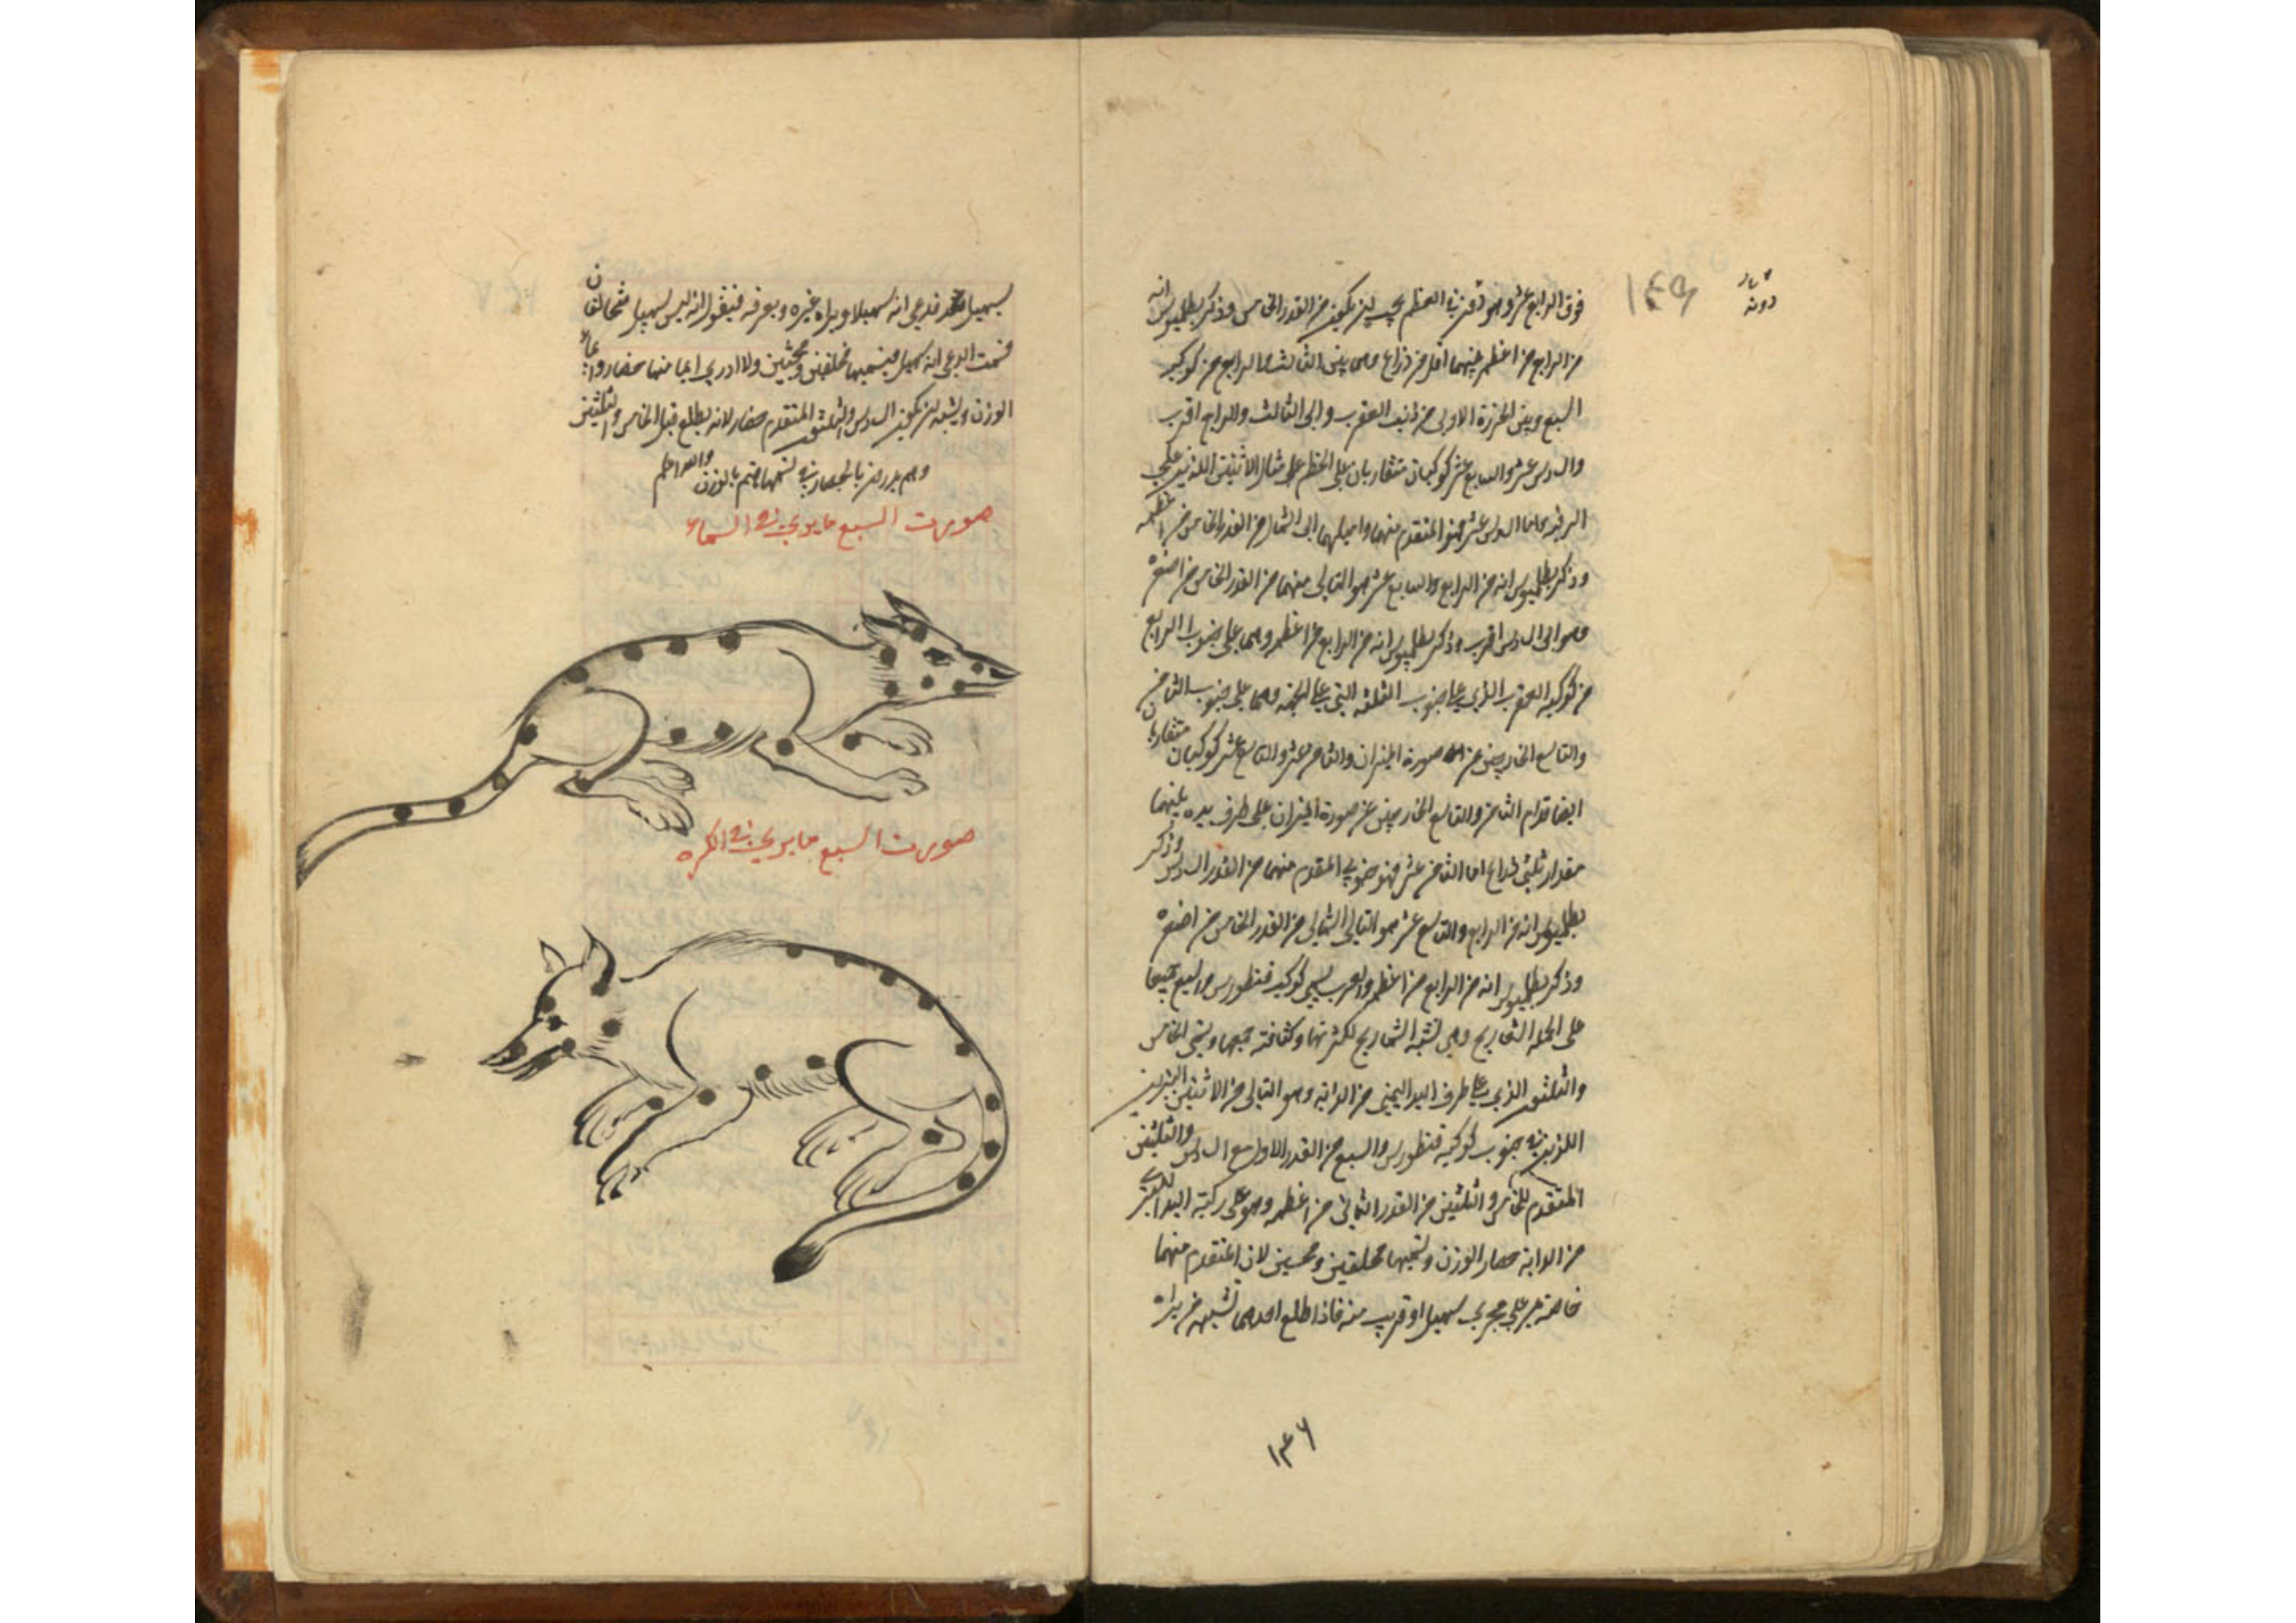 ١٤٩
فوق الرابع عشر وهو دونه في العظم يجب ان يكون من القدر الخامس وذكر بطلميوس انه
من الرابع من اعظمه بينهما اقل من ذراع وهى بين الثالث والرابع من كوكبة
السبع وبين الخرزة الاولى من ذنب العقرب والى الثالث والرابع اقرب
والسادس عشر والسابع عشر كوكبان متقاربان على الخطم على مثال الاثنين اللذين على
الرقبة اما السادس عشر فهو المتقدم منهما واميلهما الى الشمال من القدر الخامس من اعظمه
وذكر بطلميوس انه من الرابع والسابع عشر هو التالى منهما من القدر الخامس من اصغره
وهو الى السادس اقرب وذكر بطلميوس انه من الرابع من اعظمه وهما على جنوب الرابع
من كوكبة العقرب الذي على جنوب الثلثة التي على الجبهة وهما على جنوب الثامن
والتاسع الخارجين عن صورة الميزان والثامن عشر والتاسع عشر كوكبان متقاربان
ايضا قدام الثامن والتاسع الخارجين عن صورة الميزان على طرف يده بينهما
مقدار ثلثي ذراع اما الثامن عشر فهو جنوبي المتقدم منهما من القدر السادس وذكر
بطلميوس انه من الرابع والتاسع عشر هو التالي الشمالي من القدر الخامس من اصغره
وذكر بطلميوس انه من الرابع من اعظمه والعرب يسمي كوكبة قنطورس والسبع جميعا
على الجملة الشماريخ وهي تشبه الشماريخ لكثرتها وكثافة جمعها ويسمى الخامس
والثلثون الذي على طرف اليد اليمنى من الدابة وهو التالي من الاثنين النيرين
اللذين في جنوب كوكبة قنطورس والسبع من القدر الاول مع السادس والثلثين
المتقدم للخامس والثلثين من القدر الثاني من اعظمه وهو على ركبة اليد اليسرى
من الدابة حضار والوزن وتسميهما محلفين ومحنثين لان المتقدم منهما
خاصة يجري على مجرى سهيل او قريب منه فاذا طلع احدهما تشبه من يراه
١٤٦
بسهيل فقد يدعي انه سهيل ويراه غيره ويعرفه فيقول انه ليس سهيل فيتحالفان
فيحنث الدعي انه سهيل فتسميهما محلفين ومحنثين ولا ادري ايما منهما حضار وايما
الوزن ويشبه ان يكون السادس والثلثون المتقدم حضار لانه يطلع قبل الخامس والثلثين
وهم يبدرون بالحضار في تسميتها ثم بالوزن والله اعلم
صورت السبع مايرى في السماء
صورت السبع مايرى في الكره